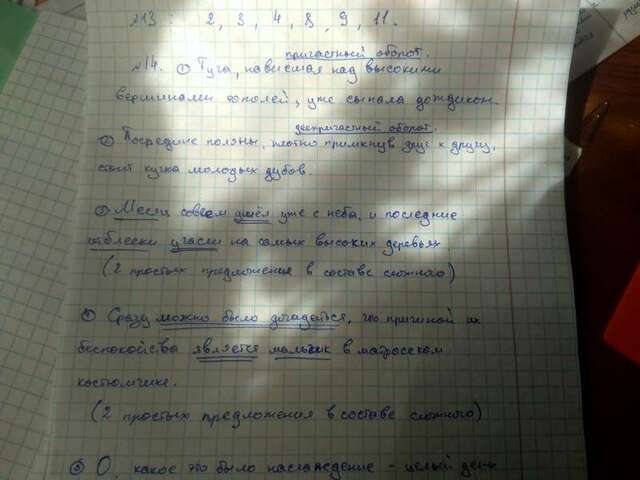 №13: 2, 3, 4, 8, 9, 11.
причастный оборот.
№14. ① Туча, нависшая над высокими
вершинами тополей, уже сыпала дождиком
деепричастный оборот.
② Посредине поляны, плотно примкнув друг к другу,
стоит кучка молодых дубов.
③ Месяц совсем ушёл уже с неба, и последние
отблески угасли на самых высоких деревьях
(2 простых предложения в составе сложного)
④ Сразу можно было догадаться, что причиной их
беспокойства является мальчик в матросском
костюмчике.
(2 простых предложения в составе сложного)
⑤ О, какое это было наслаждение – целый день